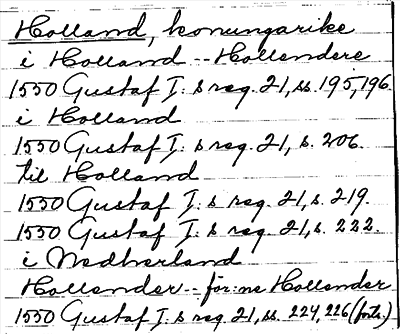 Holland, konungarike
i Holland -- Hollendere
1550 Gustaf I:s reg. 21, ss. 195, 196.
i Holland
1550 Gustaf I:s reg. 21, s. 206.
til Holland
1550 Gustaf I:s reg. 21, s. 219.
1550 Gustaf I:s reg. 21, s. 222.
i Nedherland
Hollender -- för:ne Hollender
1550 Gustaf I:s reg. 21, ss. 224, 226 (forts.)